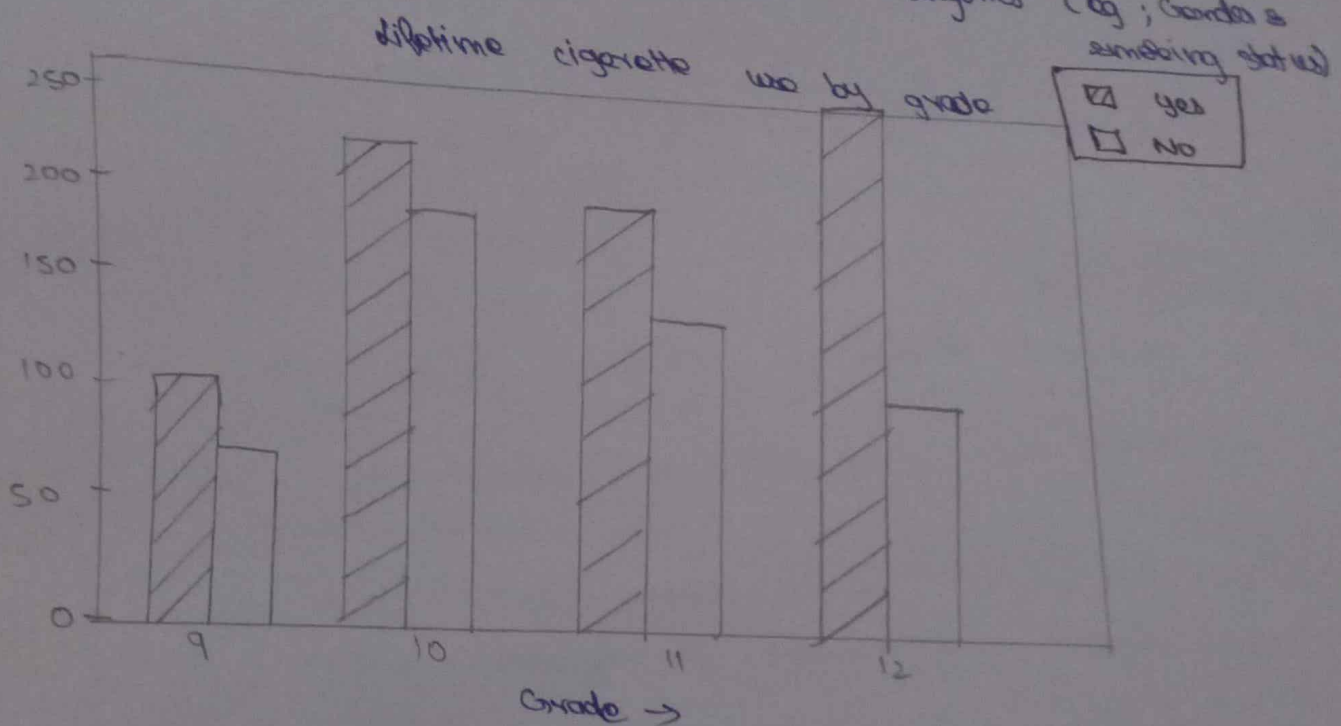 (eg; Gender &
smoking status)
Lifetime cigarette use by grade
Yes
No
250
200
150
100
50
0
9 10 11 12
Grade →